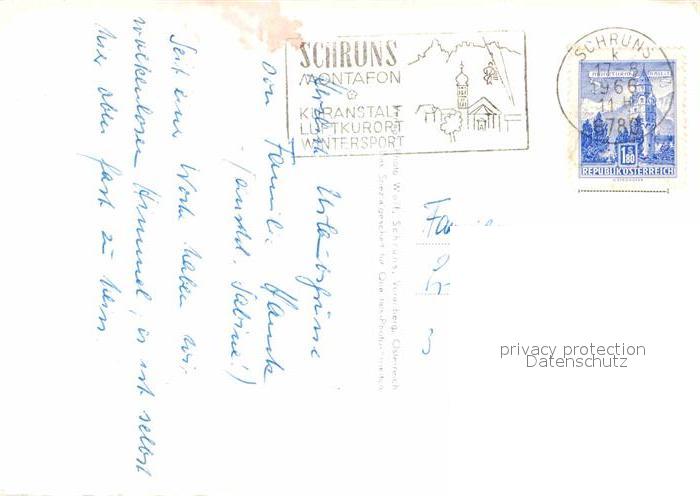 SCHRUNS
MONTAFON
KURANSTALT
LUFTKURORT
WINTERSPORT
SCHRUNS
k
17-8
1966
11 H
6780
1.80
S
REPUBLIK ÖSTERREICH
Wolf, Schruns, Vorarlberg, Österreich
Herzliche Urlaubsgrüsse
von Familie
Sabine!)
Seit einer Woche haben wir
wolkenlosen Himmel; es ist selbst
hier oben fast zu heiss.
privacy protection
Datenschutz